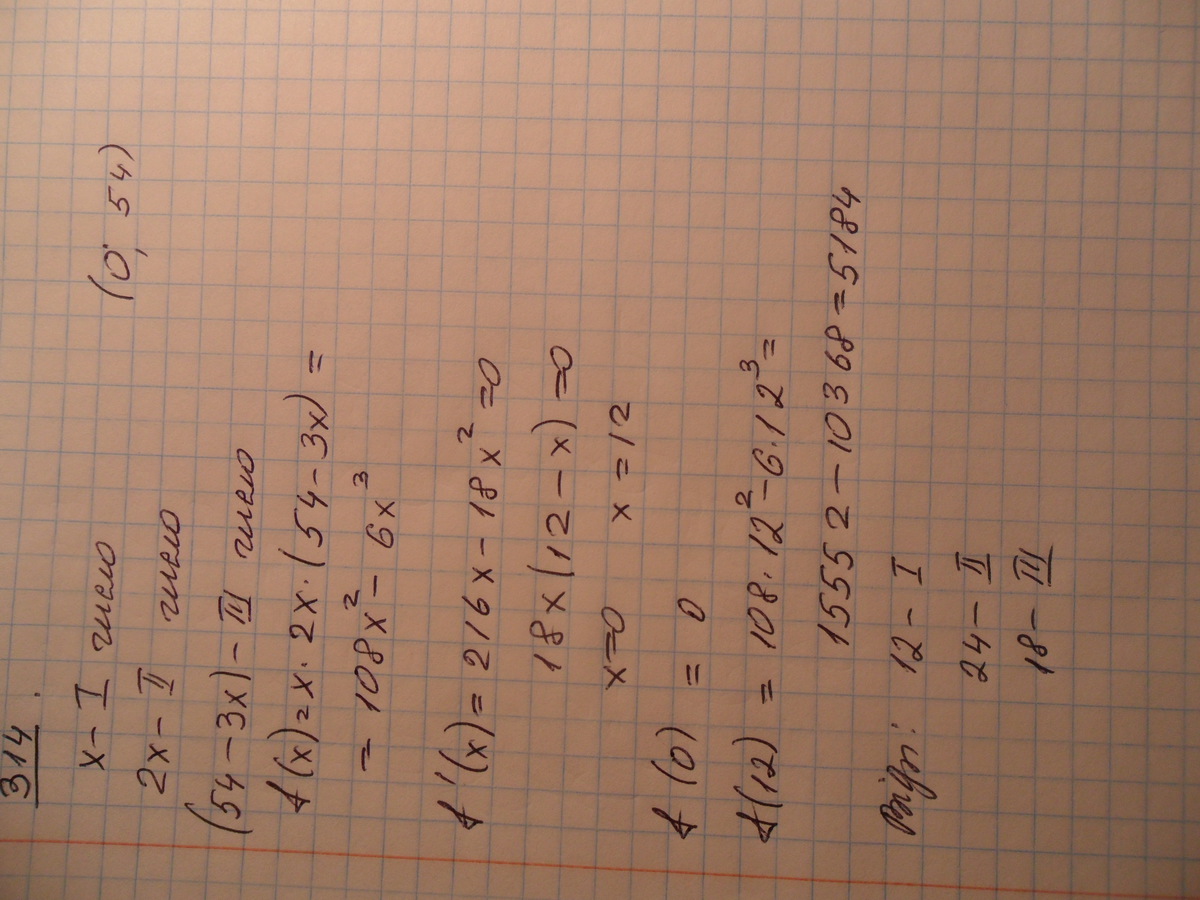 314.
x - I число (0; 54)
2x - II число
(54 - 3x) - III число
f(x) = x · 2x · (54 - 3x) =
= 108x² - 6x³
f'(x) = 216x - 18x² = 0
18x(12 - x) = 0
x=0 x = 12
f(0) = 0
f(12) = 108 · 12² - 6 · 12³ =
15552 - 10368 = 5184
Відп: 12 - I
24 - II
18 - III